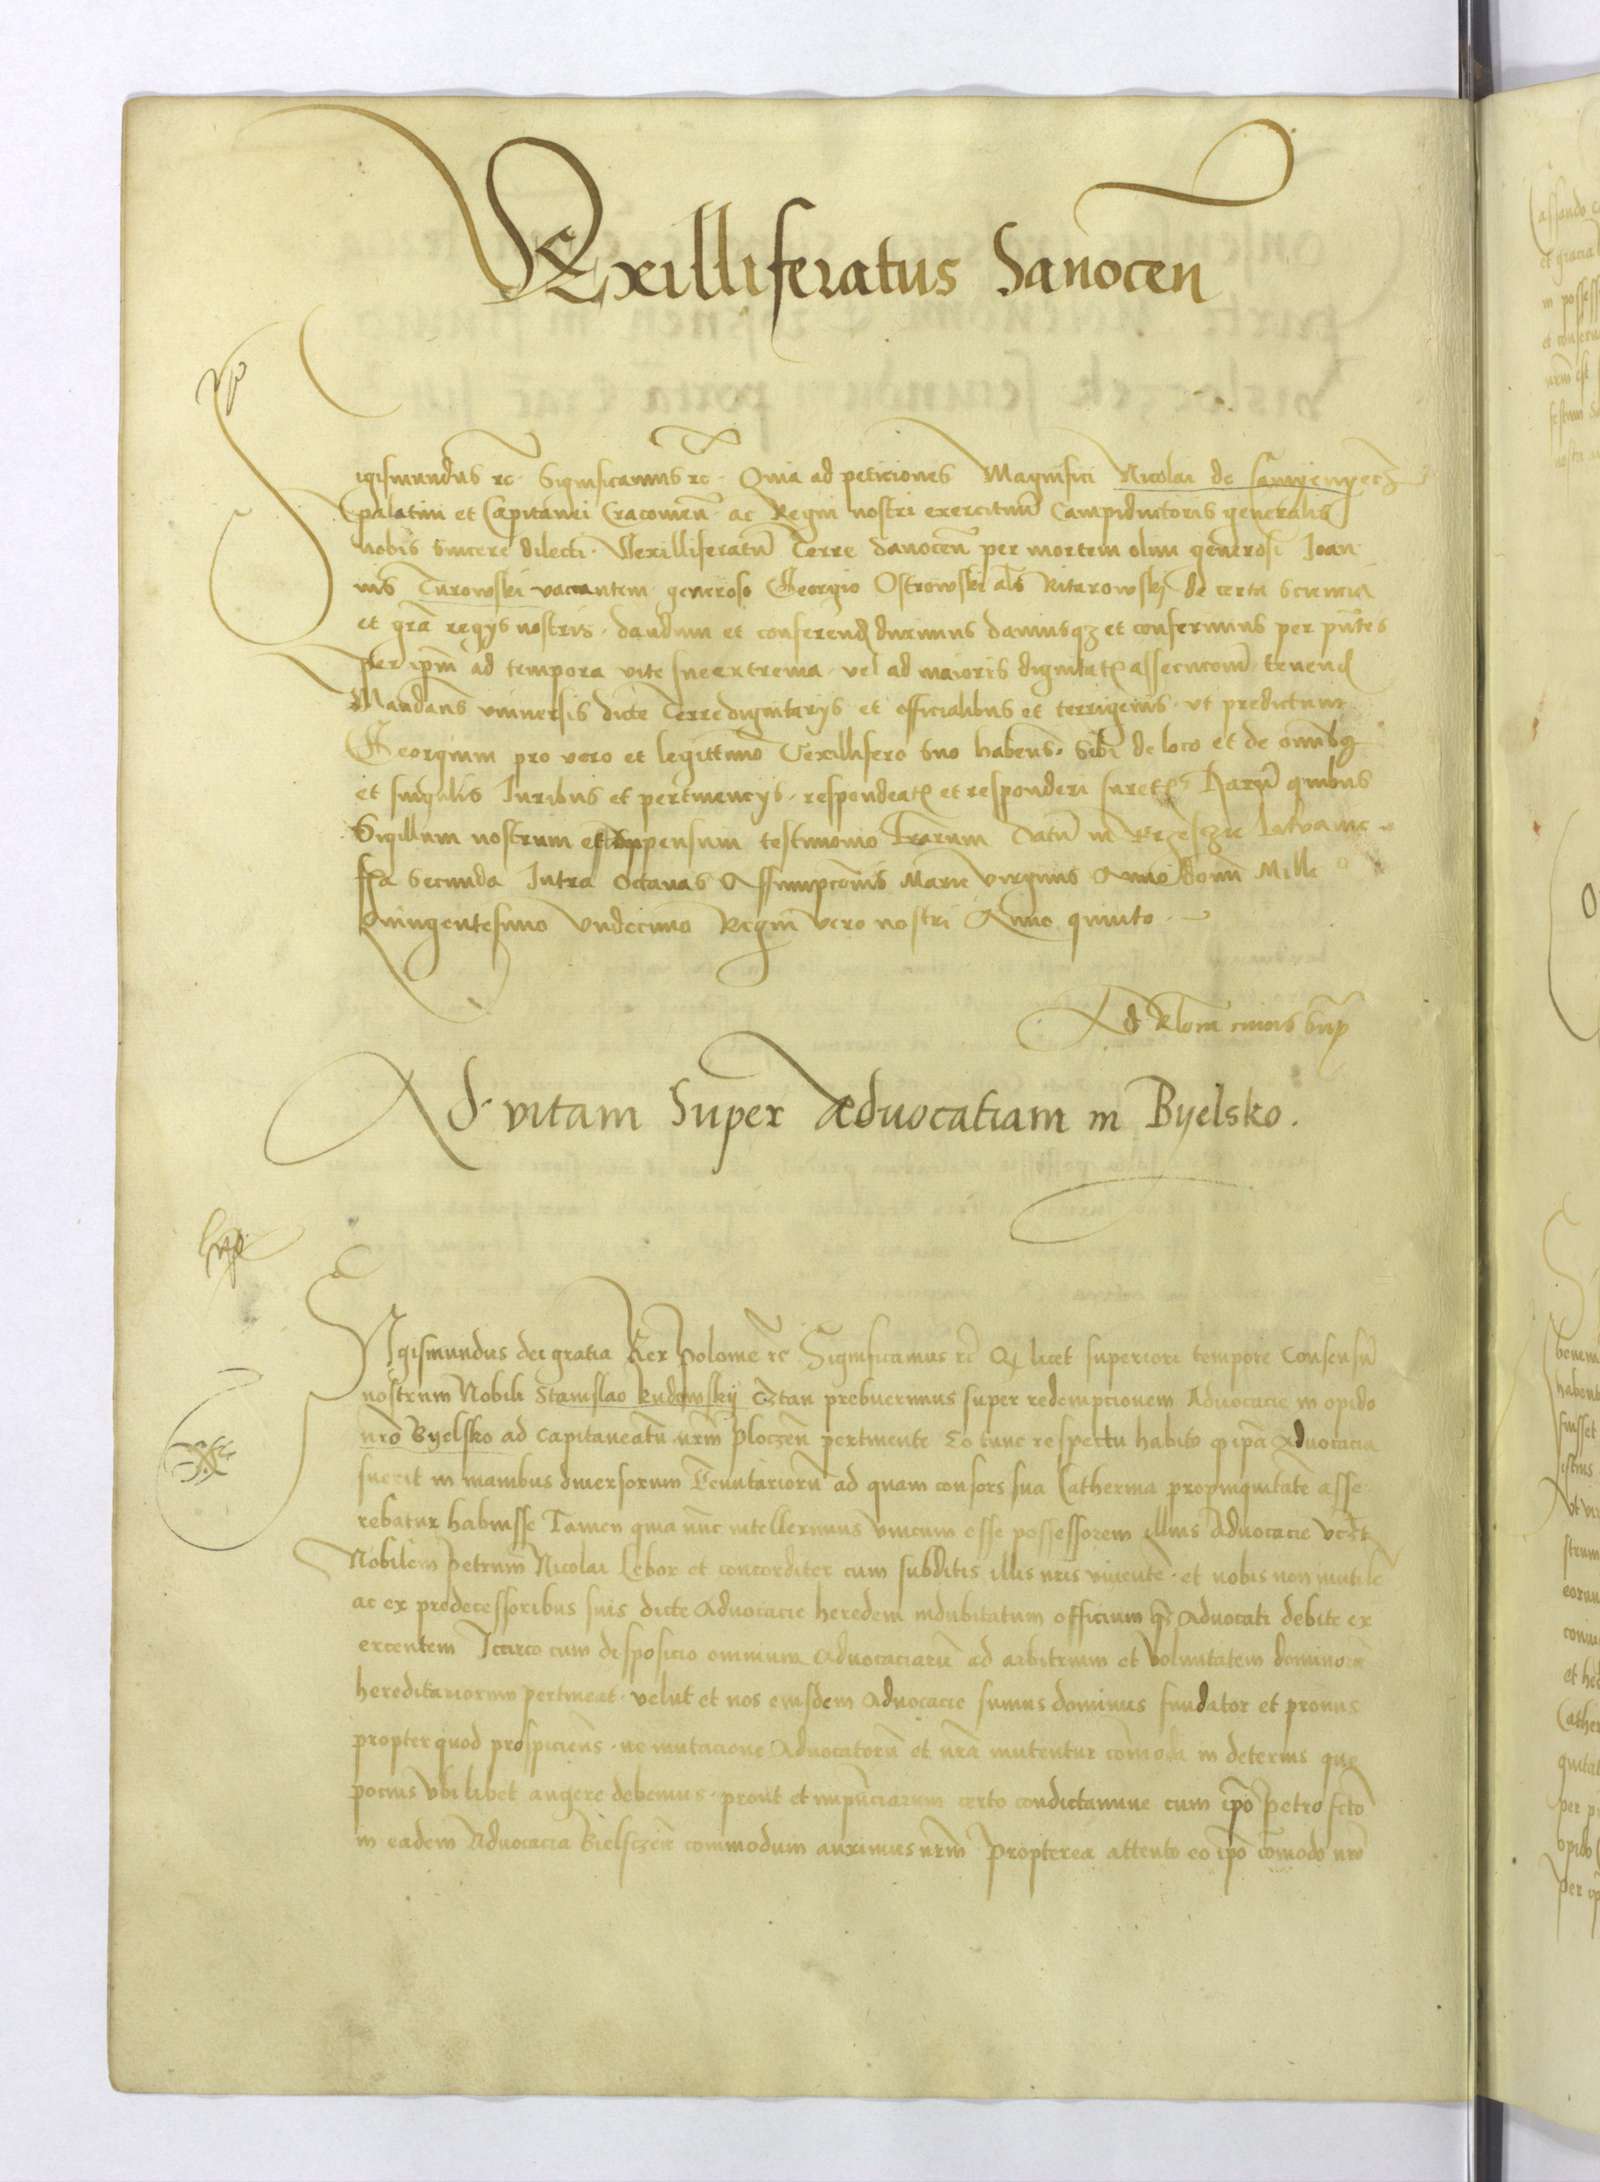 Vexilliferatus Sanocen
Sigismundus rc. Significamus rc. Quia ad peticiones Magnifici Nicolai de Camyenyecz
palatini et Capitanei Cracovien. ac Regni nostri exercituu Campiductoris generalis
nobis sincere dilecti. Vexilliferatu Terre Sanocen per mortem olim generosi Joan
nis Turowski vacantem generoso Georgio Ostrowski als Pitarowskj de certa sciencia
et gra regys nostris. dandum et conferend duximus damusqz et conferimus per pntes
per ipm ad tempora vite sue extrema. vel ad maioris dignitat assecucom. tenend
Mandans universis dicte Terre dignitarys et officialibus et terrigenis. ut predictum
Georgium pro vero et legittimo Vexillifero suo habens. Sibi de loco et de omnibqz
et singulis Juribus et pertinencys. respondeat et responderi faret. Haru quibus
Sigillum nostrum est appensum testimonio lrarum Datu in Brzesczie Litvanie
fia secunda Intra octavas Assumpconis Marie virginis Anno domi Mille
Quingentesimo Undecimo Regni vero nostri Anno quinto.
Ad Rlonem cuius sup
Ad vitam super Advocatiam in Byelsko.
Sigismundus dei gratia Rex Polonie rc Significamus rc Q licet superiori tempore Consensu
nostrum Nobili Stanislao Rudowskij Cztan prebuerimus super redempcionem Advocacie in opido
nro Byelsko ad Capitaneatu nrm Ploczen pertinente Eo tunc respectu habito q ipa Advocacia
fuerit in manibus diversorum Tenutarioru ad quam consors sua Catherina propinquitate asse
rebatur habuisse Tamen quia nunc intellexmus unicum esse possessorem illius Advocacie vczt
Nobilem Petrum Nicolai Lebor et concorditer cum subditis illis nris vivente. et nobis non inutile
ac ex predecessoribus suis dicte Advocacie heredem indubitatum officium q Advocati debite ex
ercentem Iccirco cum disposicio omnium Advocaciaru ad arbitrium et voluntatem dominor
hereditariorum pertineat. velut et nos eiusdem Advocacie sumus dominus fundator et pronus
propter quod prospiciens. ne mutacione Advocatoru et nra mutentur comoda in deterius que
pocius ubilibet augere debemus. prout et in puciarum certo condictamine cum ipo Petro fcto
in eadem Advocacia Bielsczen commodum auximus nrm Propterea attento eo ipo comodo nro